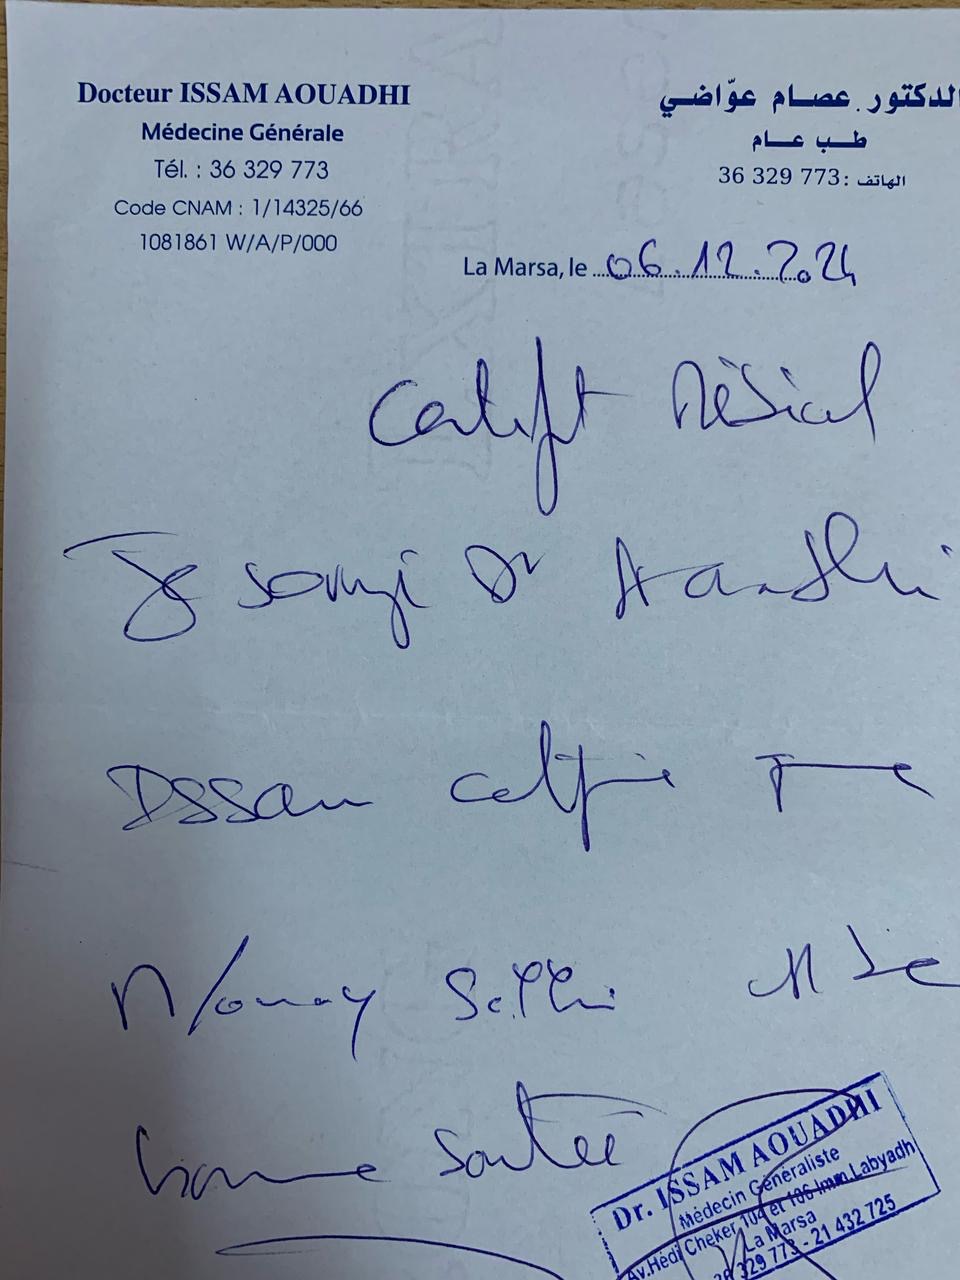 Docteur ISSAM AOUADHI
Médecine Générale
Tél. : 36 329 773
Code CNAM : 1/14325/66
1081861 W/A/P/000
الدكتور عصام عوّاضي
طب عام
الهاتف : 36 329 773
La Marsa, le 06.12.2024
Certificat Médical
Je soussigné Dr Aouadhi
Issam certifie que
bonne santé
Dr. ISSAM AOUADHI
Médecin Généraliste
Av.Hédi Cheker 104 et 106 Imm.Labyadh
La Marsa
36 329 773 - 21 432 725